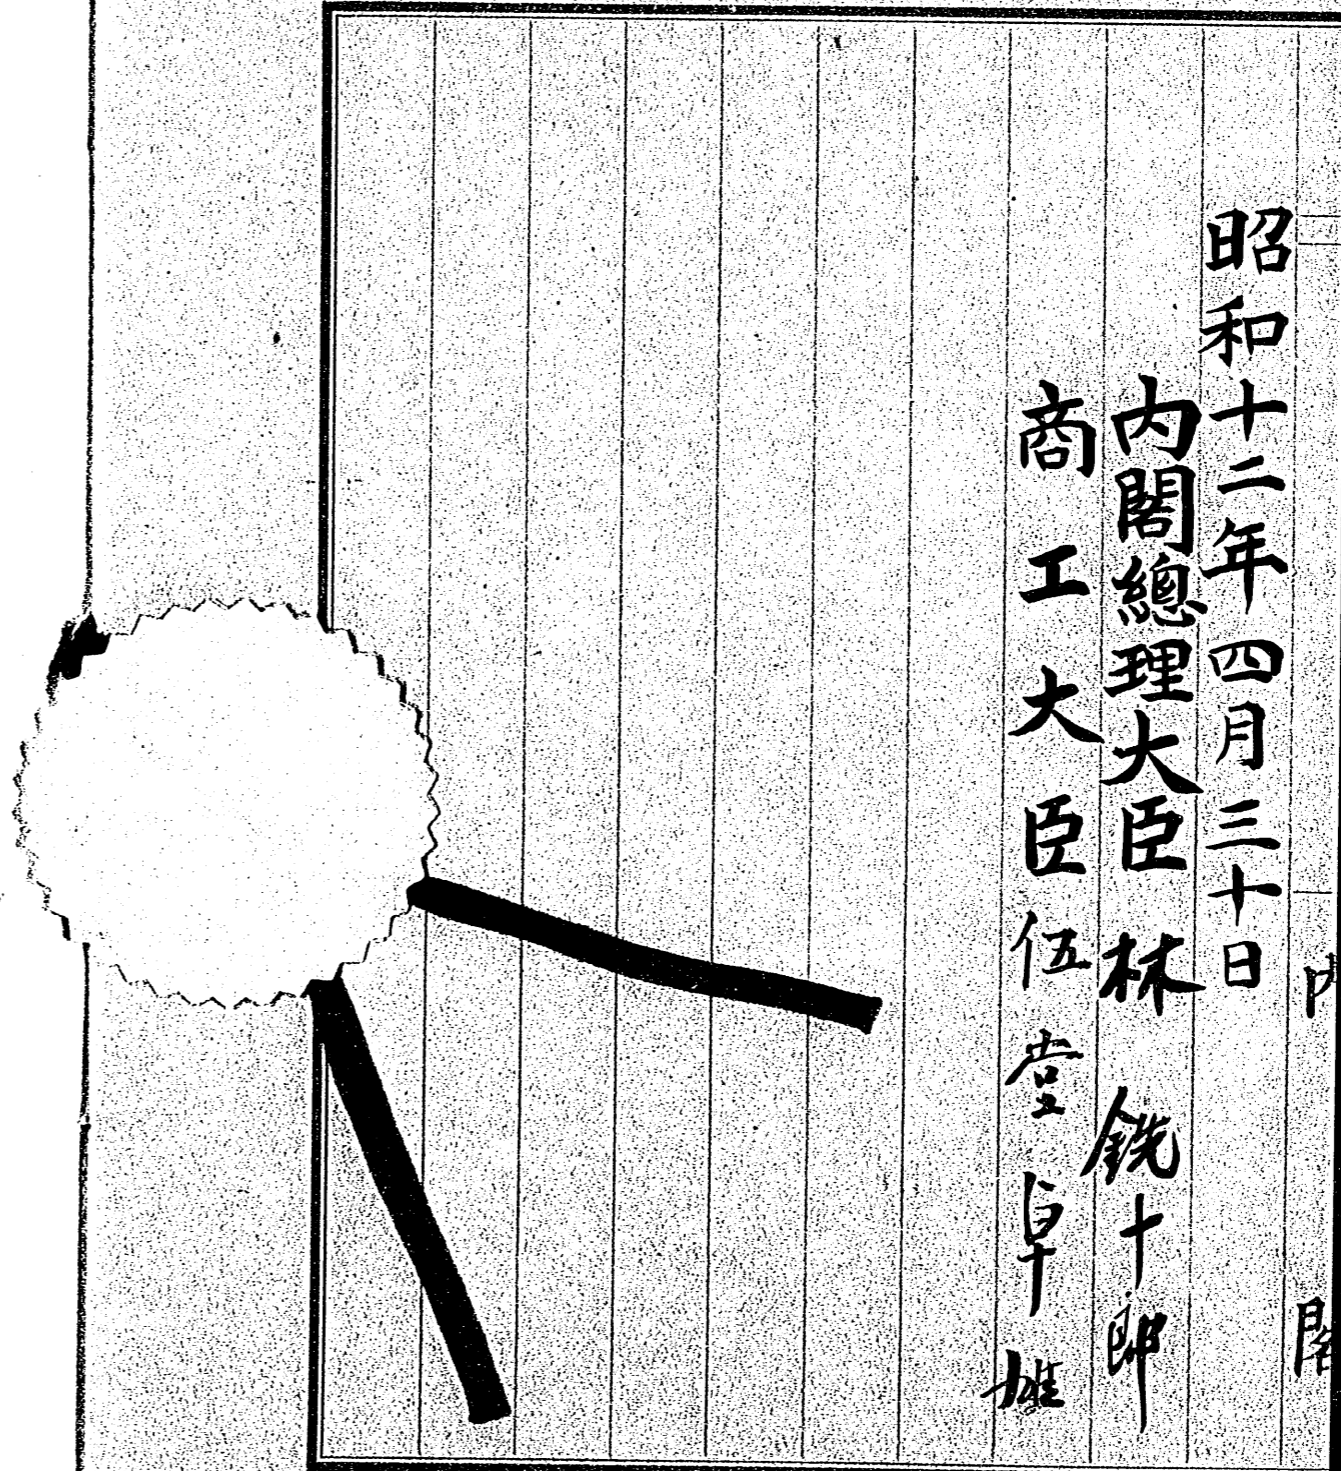 内閣
昭和十二年四月三十日
内閣總理大臣 林 銑十郎
商工大臣 伍堂卓雄